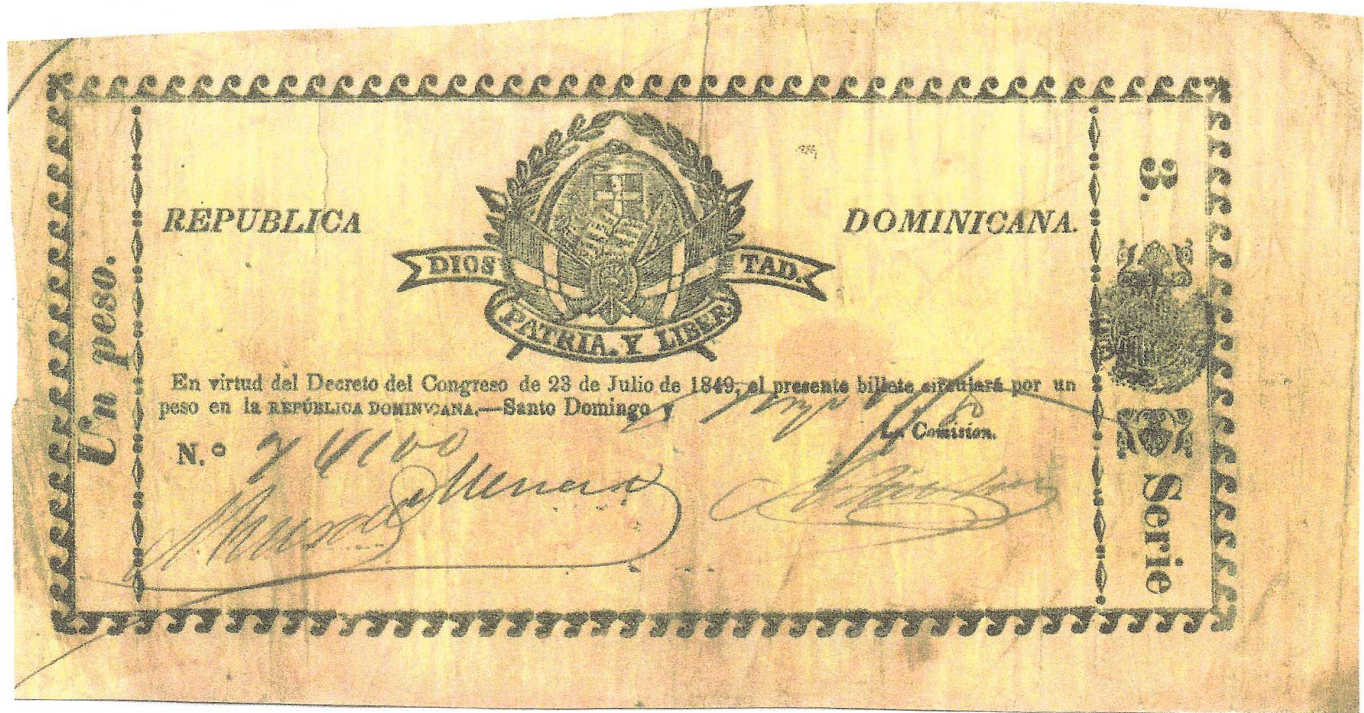 Un peso.
REPUBLICA DOMINICANA.
DIOS PATRIA. Y LIBER TAD.
En virtud del Decreto del Congreso de 23 de Julio de 1849, el presente billete circulará por un
peso en la REPÚBLICA DOMINVCANA.—Santo Domingo y
La Comision.
N.º
3.
Serie